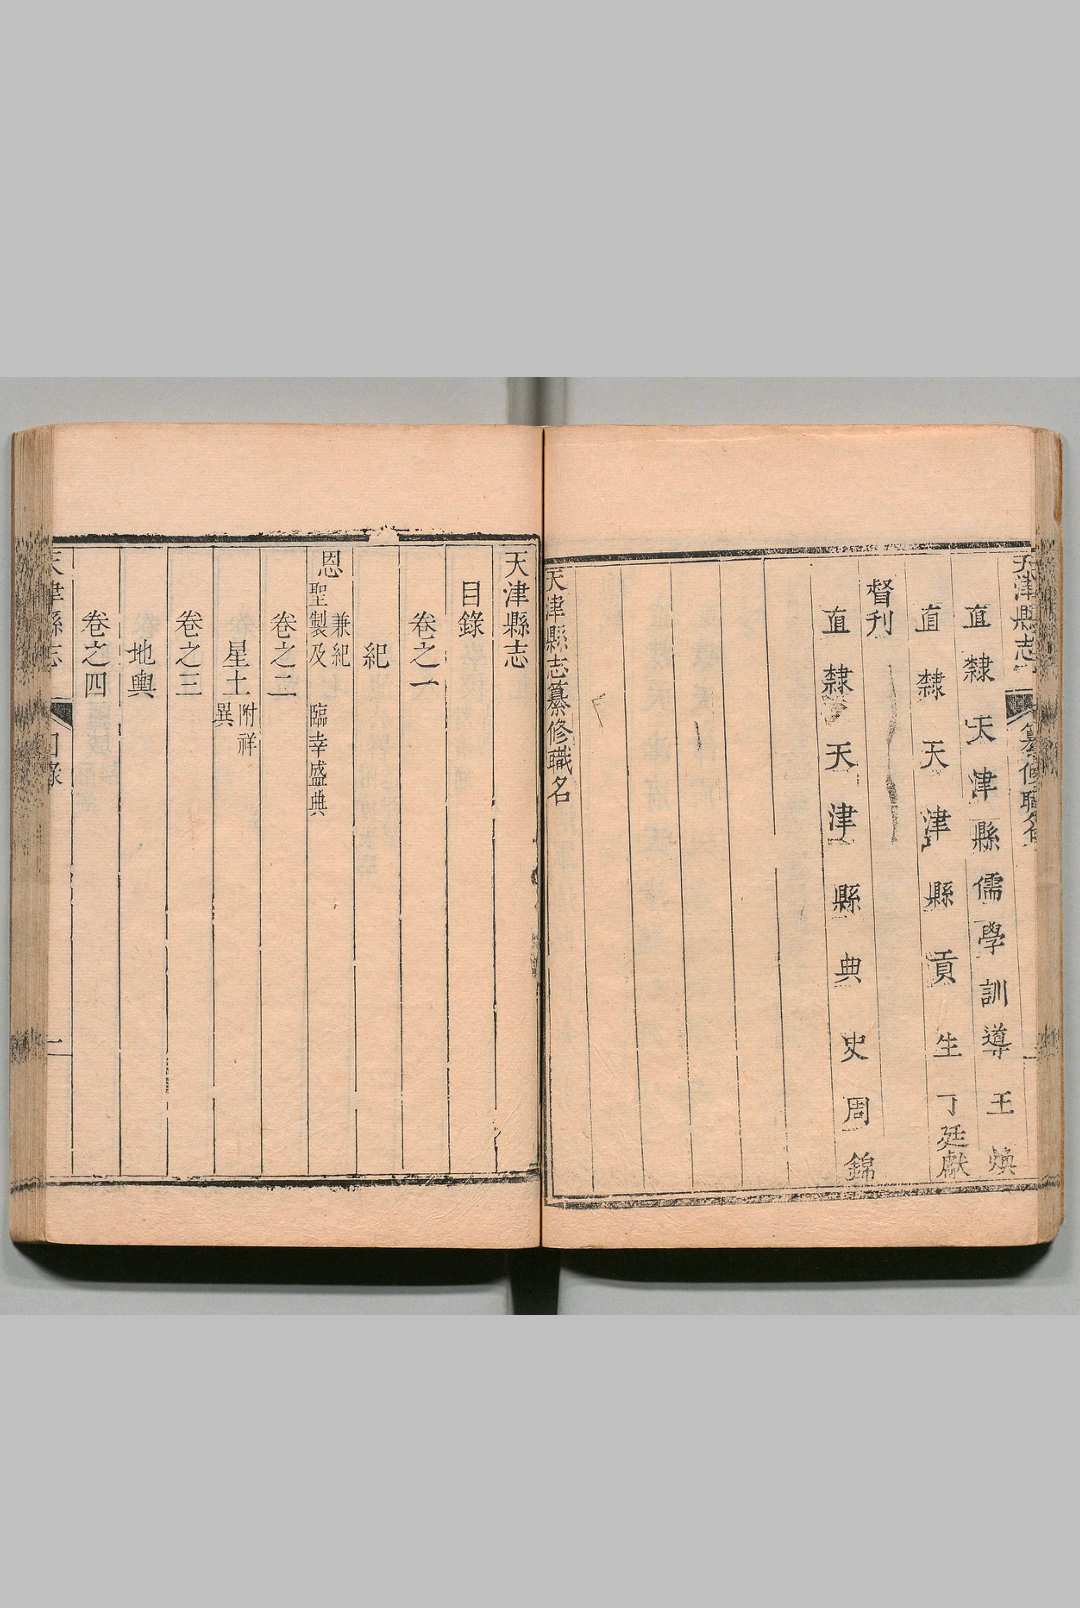 天津縣志
纂修職名
直隸天津縣儒學訓導王煥
直隸天津縣貢生丁廷獻
督刋
直隸天津縣典史周錦
天津縣志纂修職名
天津縣志
目錄
卷之一
紀
兼紀
恩聖製及臨幸盛典
卷之二
星土附祥異
卷之三
地輿
卷之四
天津縣志
目錄
一